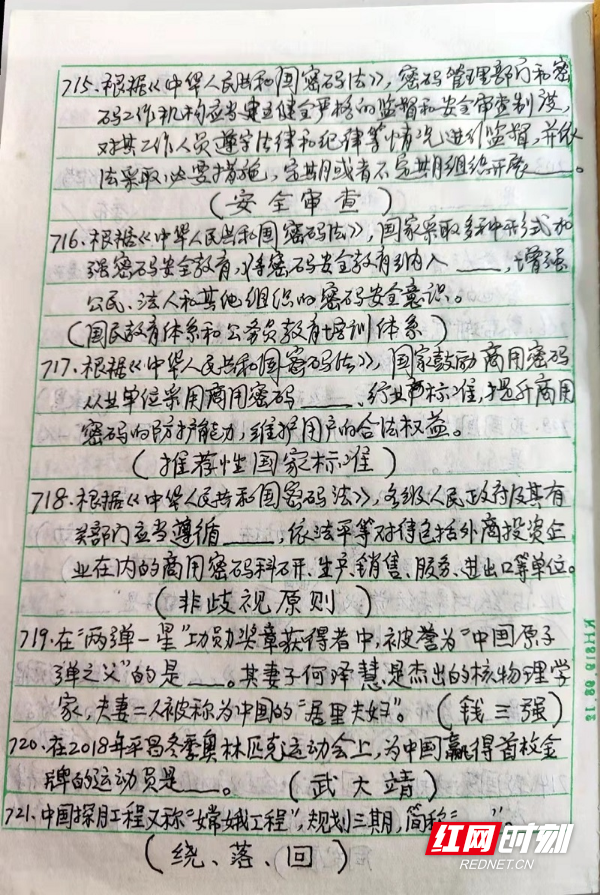 715.根据《中华人民共和国密码法》,密码管理部门和密
码工作机构应当建立健全严格的监督和安全审查制度,
对其工作人员遵守法律和纪律等情况进行监督,并依
法采取必要措施,定期或者不定期组织开展____。
(安全审查)
716.根据《中华人民共和国密码法》,国家采取多种形式加
强密码安全教育,将密码安全教育纳入____,增强
公民、法人和其他组织的密码安全意识。
(国民教育体系和公务员教育培训体系)
717.根据《中华人民共和国密码法》,国家鼓励商用密码
从业单位采用商用密码____、行业标准,提升商用
密码的防护能力,维护用户的合法权益。
(推荐性国家标准)
718.根据《中华人民共和国密码法》,各级人民政府及其有
关部门应当遵循____,依法平等对待包括外商投资企
业在内的商用密码科研、生产、销售、服务、进出口等单位。
(非歧视原则)
719.在“两弹一星”功勋奖章获得者中,被誉为“中国原子
弹之父”的是____。其妻子何泽慧是杰出的核物理学
家,夫妻二人被称为中国的“居里夫妇”。(钱三强)
720.在2018年平昌冬季奥林匹克运动会上,为中国赢得首枚金
牌的运动员是____。(武大靖)
721.中国探月工程又称“嫦娥工程”,规划三期,简称“____”。
(绕、落、回)
红网时刻
REDNET.CN